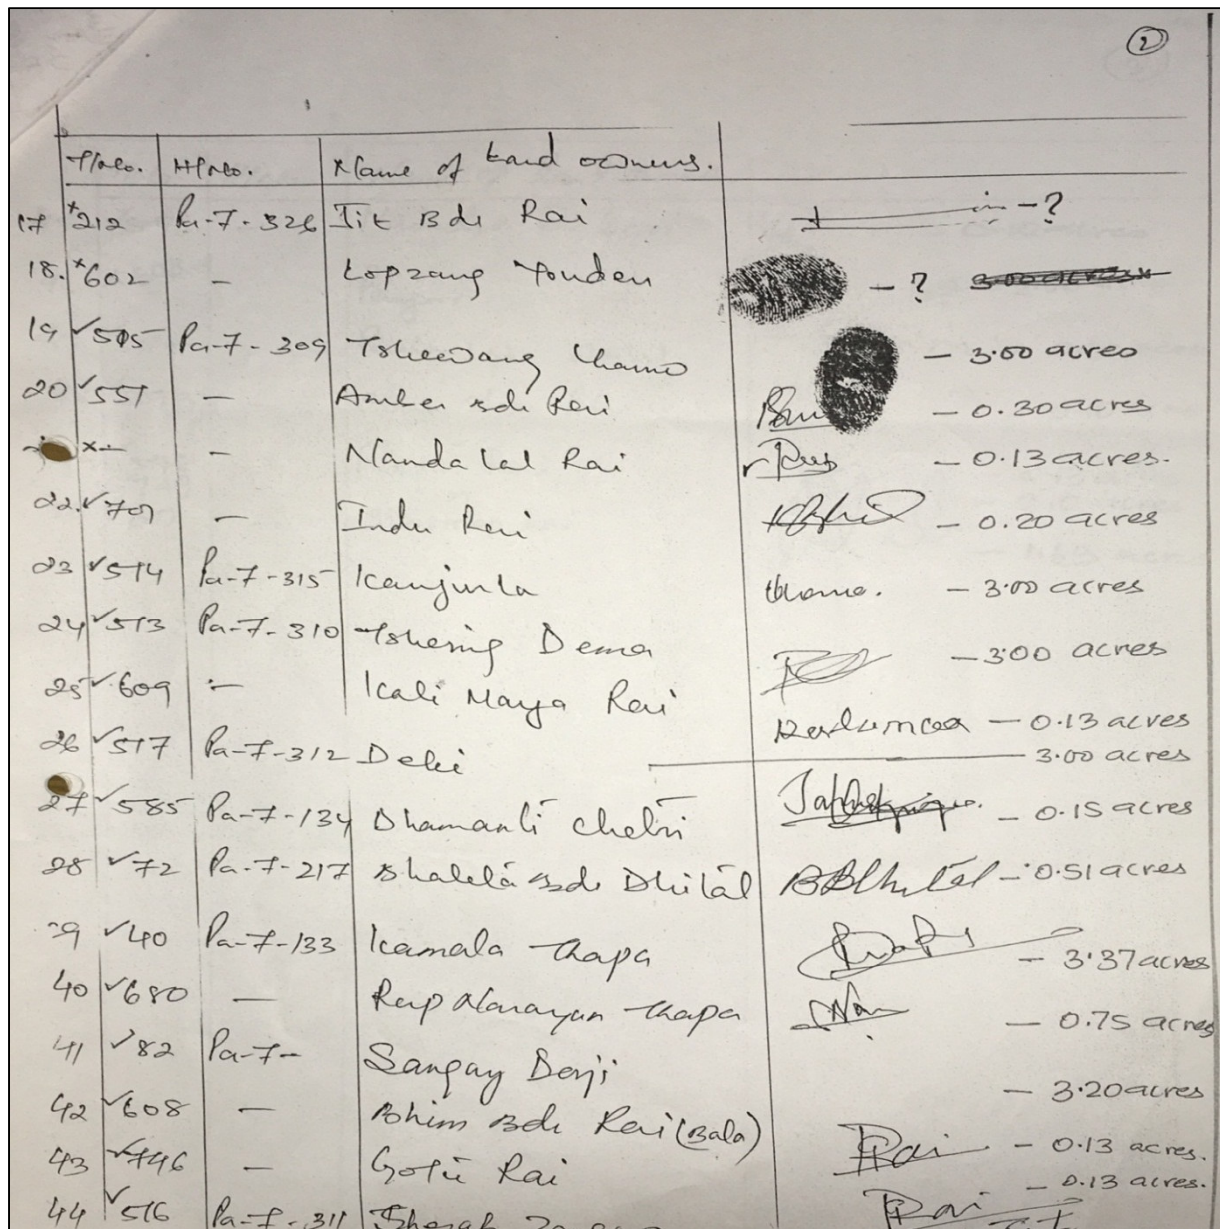 2
T/No. H/No. Name of Land owners.
17 x212 Pa-7-326 Jit Bdr Rai - ?
18. x602 - Lopzang Youden - ? 3.00 acres
19 ✓505 Pa-7-309 Tshewang Lhamo - 3.00 acres
20 ✓551 - Amber Bdr Rai - 0.30 acres
x- - Nanda Lal Rai - 0.13 acres.
22. ✓701 - Indu Rai - 0.20 acres
23 ✓514 Pa-7-315 Kanjurla Lhamo. - 3.00 acres
24 ✓513 Pa-7-310 Tshering Dema - 3.00 acres
25 ✓609 - Kali Maya Rai - 0.13 acres
26 ✓517 Pa-7-312 Deki - 3.00 acres
27 ✓585 Pa-7-134 Dhamanti Chetri - 0.15 acres
28 ✓72 Pa-7-217 Bdr Dhital BBDhital - 0.51 acres
39 ✓40 Pa-7-133 Kamala Thapa - 3.37 acres
40 ✓680 - Rup Narayan Thapa - 0.75 acres
41 ✓82 Pa-7- Sangay Dorji - 3.20 acres
42 ✓608 - Bhim Bdr Rai (Bala) Rai - 0.13 acres.
43 ✓746 - Rai - 0.13 acres.
44 ✓516 Pa-7-311 Rai